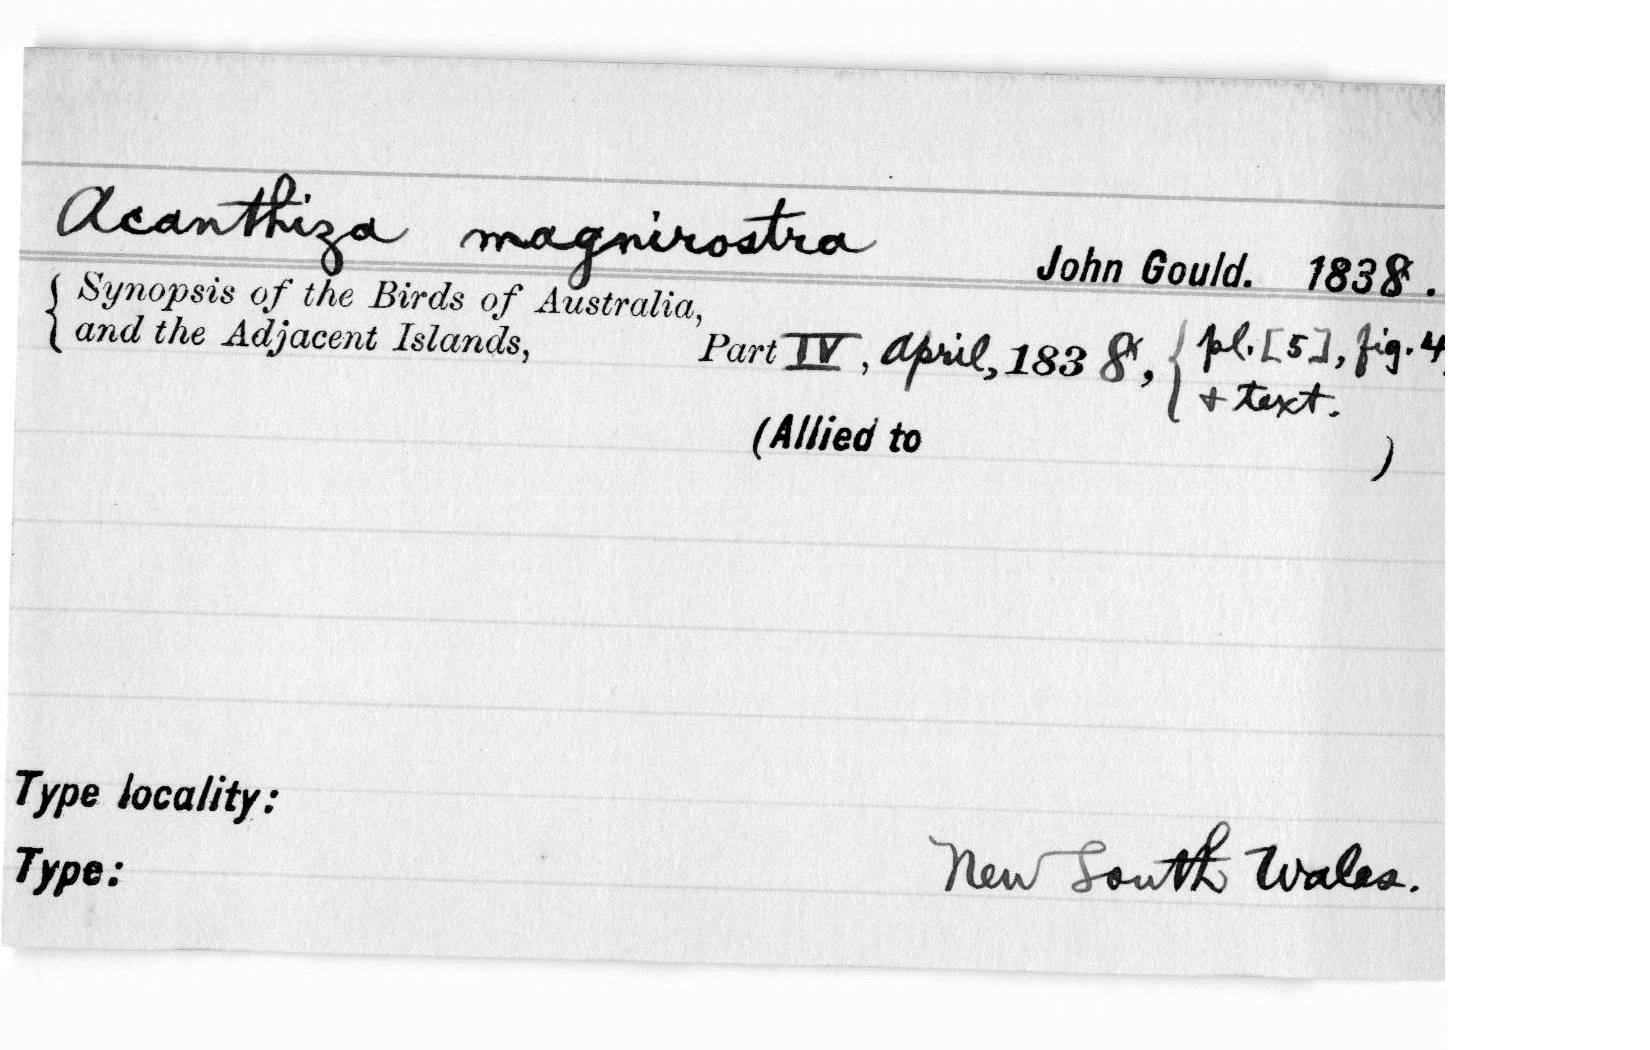 Acanthiza magnirostra
John Gould. 1838.
{ Synopsis of the Birds of Australia,
and the Adjacent Islands, Part IV, April, 1838, { pl. [5], fig. 4
+ text.
(Allied to )
Type locality:
Type: New South Wales.